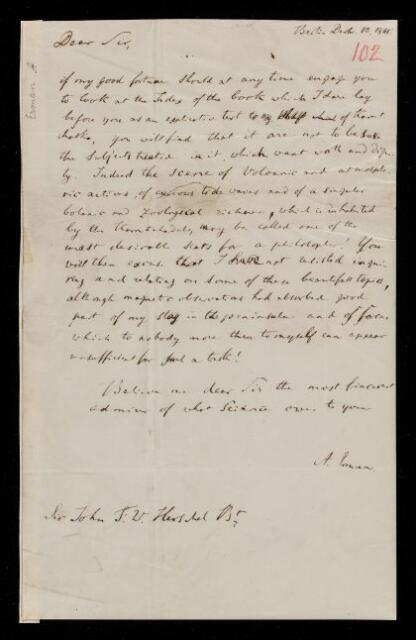 Berlin Dec. 10, 1848.
102
Erman A
Dear Sir,
if my good fortune should at any time engage you
to look at the Index of the book which I dare lay
before you as an text to my of Kamt
chatka, you will find that it are not to be
the Subjects treated in it, which want worth and dign
ity. Indeed the scene of Volcanic and
actions, of curious and of a singular
botanic and zoological richness, which is inhabited
by the Kamtchadales, may be called one of the
most desirable seats for a philosopher! You
will then excuse that I have not resisted inqui
ring and relating on some of these beautifull topics,
although magnetic observations had absorbed good
part of my stay in the peninsula and of forces
which to nobody more then to myself can appear
unsufficient for such a task!
Believe me dear Sir the most sincerest
admirer of what Science owes to you
A. Erman
Sir John F. W. Herschel Bt